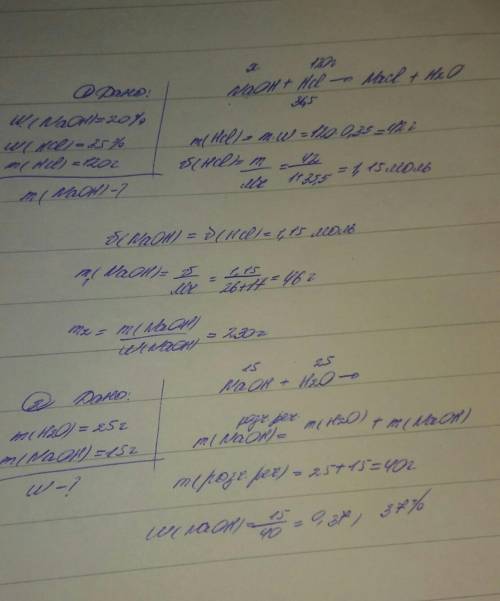 ① Дано:
W(NaOH)=20%
W(HCl)=25%
m(HCl)=120г
m(NaOH)-?
x 120г
NaOH + HCl → NaCl + H2O
36,5
m(HCl) = m·W = 120·0,35=42г
ϑ(HCl)= m/Mr = 42/1+35,5 = 1,15 моль
ϑ(NaOH) = ϑ(HCl)=1,15 моль
m1(NaOH)= ϑ/Mr = 1,15/26+17 = 46г
m2 = m(NaOH)/W(NaOH) = 230г
② Дано:
m(H2O) = 25г
m(NaOH)=15г
W-?
15 25
NaOH + H2O →
m(NaOH)= m(H2O) + m(NaOH)
m(розч.реч) = 25+15=40г
W(NaOH)= 15/40 = 0,37, 37%